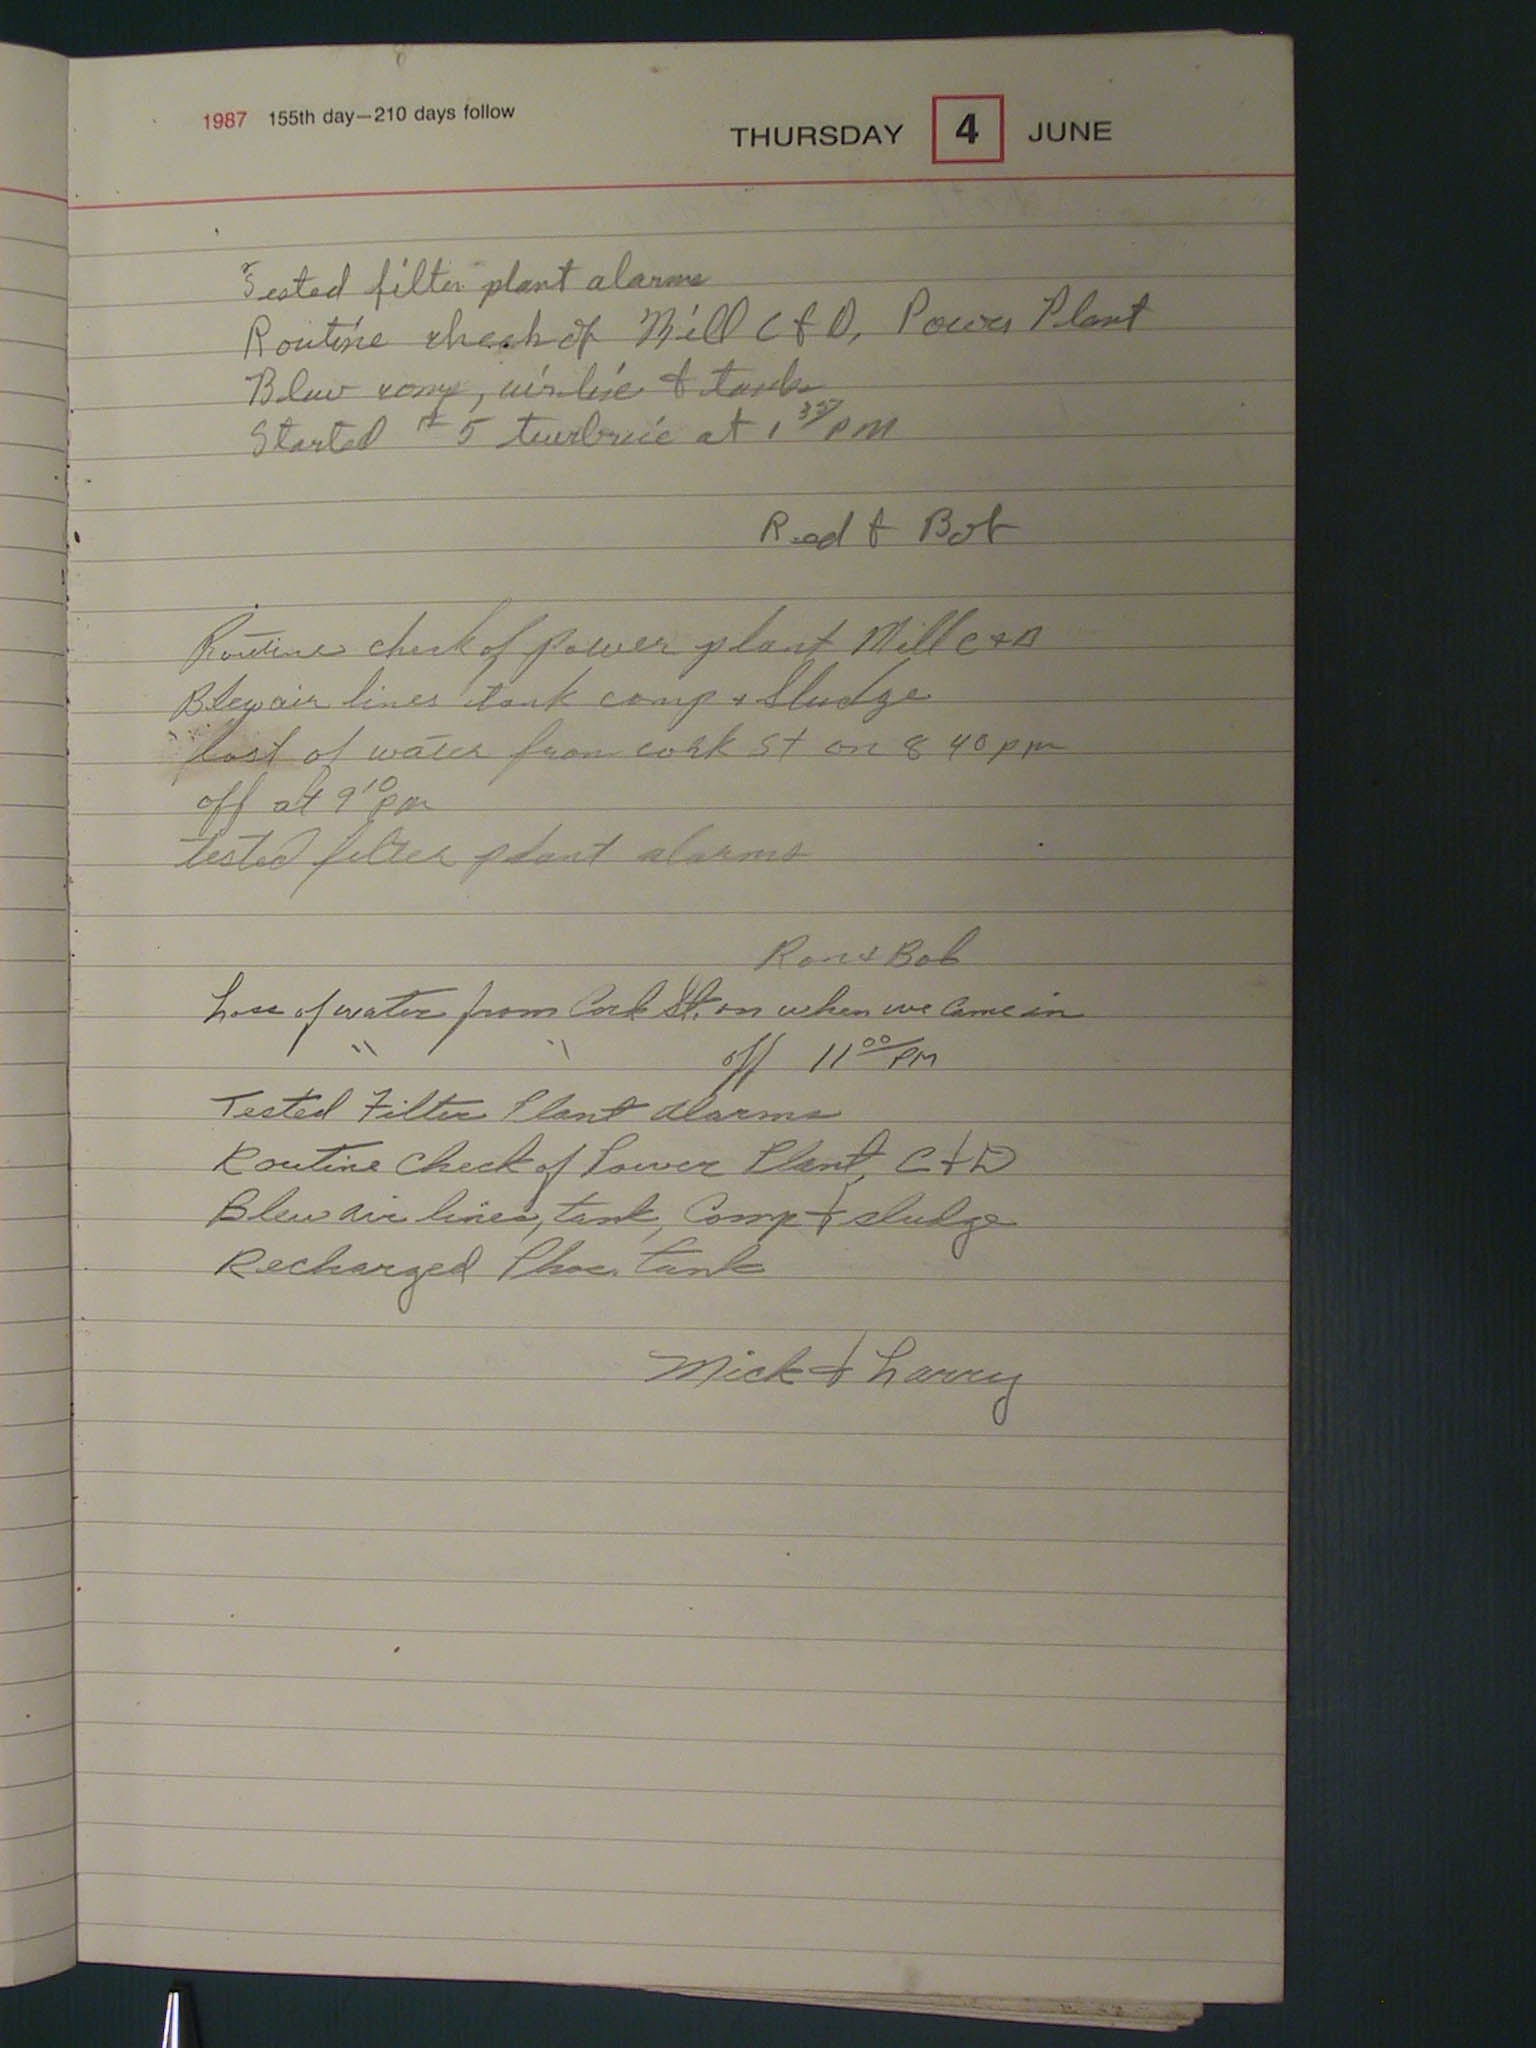 1987 155th day—210 days follow
THURSDAY 4 JUNE
Tested filter plant alarms
Routine check of Mill C & D, Power Plant
Blew comp, airline & tank
Started #5 turbine at 1 35 PM
Red & Bob
Routine check of power plant Mill C & D
Blew air lines tank comp & Sludge
lost of water from cork St on 8 40 pm
off at 9 10 pm
tested filter plant alarms
Ron & Bob
Loss of water from Cork St. on when we came in
" " off 11 00 PM
Tested Filter Plant alarms
Routine Check of Power Plant, C & D
Blew air lines, tank, Comp & sludge
Recharged Phos. tank
Mick & Larry